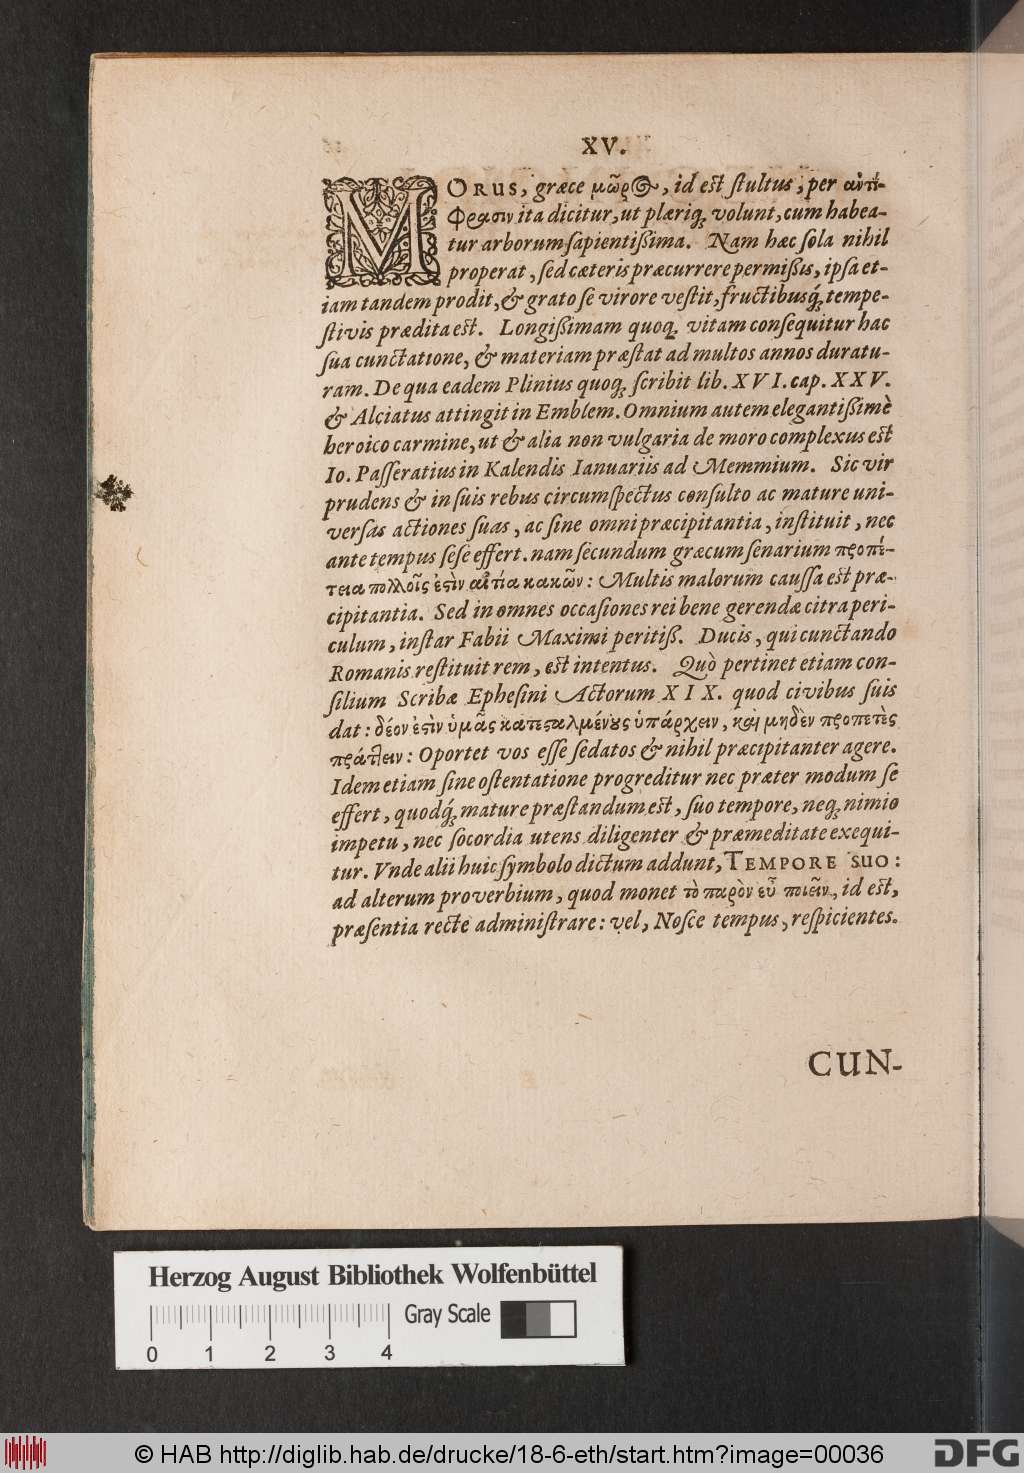 XV.
MORUS, græce μῶρος, id est stultus, per αντί-
φρασιν ita dicitur, ut plæriq; volunt, cum habea-
tur arborum sapientißima. Nam hæc sola nihil
properat, sed cæteris præcurrere permißis, ipsa et-
iam tandem prodit, & grato se virore vestit, fructibusq́; tempe-
stivis prædita est. Longißimam quoq; vitam consequitur hac
sua cunctatione, & materiam præstat ad multos annos duratu-
ram. De qua eadem Plinius quoq; scribit lib. XVI. cap. XXV.
& Alciatus attingit in Emblem. Omnium autem elegantißimè
heroico carmine, ut & alia non vulgaria de moro complexus est
Io. Passeratius in Kalendis Ianuariis ad Memmium. Sic vir
prudens & in suis rebus circumspectus consulto ac mature uni-
versas actiones suas, ac sine omni præcipitantia, instituit, nec
ante tempus sese effert. nam secundum græcum senarium προπέ-
τεια πολλοῖς ἐστὶν αἰτία κακῶν: Multis malorum caussa est præ-
cipitantia. Sed in omnes occasiones rei bene gerendæ citra peri-
culum, instar Fabii Maximi peritiß. Ducis, qui cunctando
Romanis restituit rem, est intentus. Quò pertinet etiam con-
silium Scribæ Ephesini Actorum XIX. quod civibus suis
dat: δέον ἐστὶν ὑμᾶς κατεσταλμένους ὑπάρχειν, καὶ μηδὲν προπετὲς
πράττειν: Oportet vos esse sedatos & nihil præcipitanter agere.
Idem etiam sine ostentatione progreditur nec præter modum se
effert, quodq́; mature præstandum est, suo tempore, neq; nimio
impetu, nec socordia utens diligenter & præmeditate exequi-
tur. Vnde alii huic symbolo dictum addunt, TEMPORE SUO:
ad alterum proverbium, quod monet τὸ παρὸν εὖ ποιεῖν, id est,
præsentia recte administrare: vel, Nosce tempus, respicientes.
CUN-
Herzog August Bibliothek Wolfenbüttel
Gray Scale
0 1 2 3 4
© HAB http://diglib.hab.de/drucke/18-6-eth/start.htm?image=00036
DFG